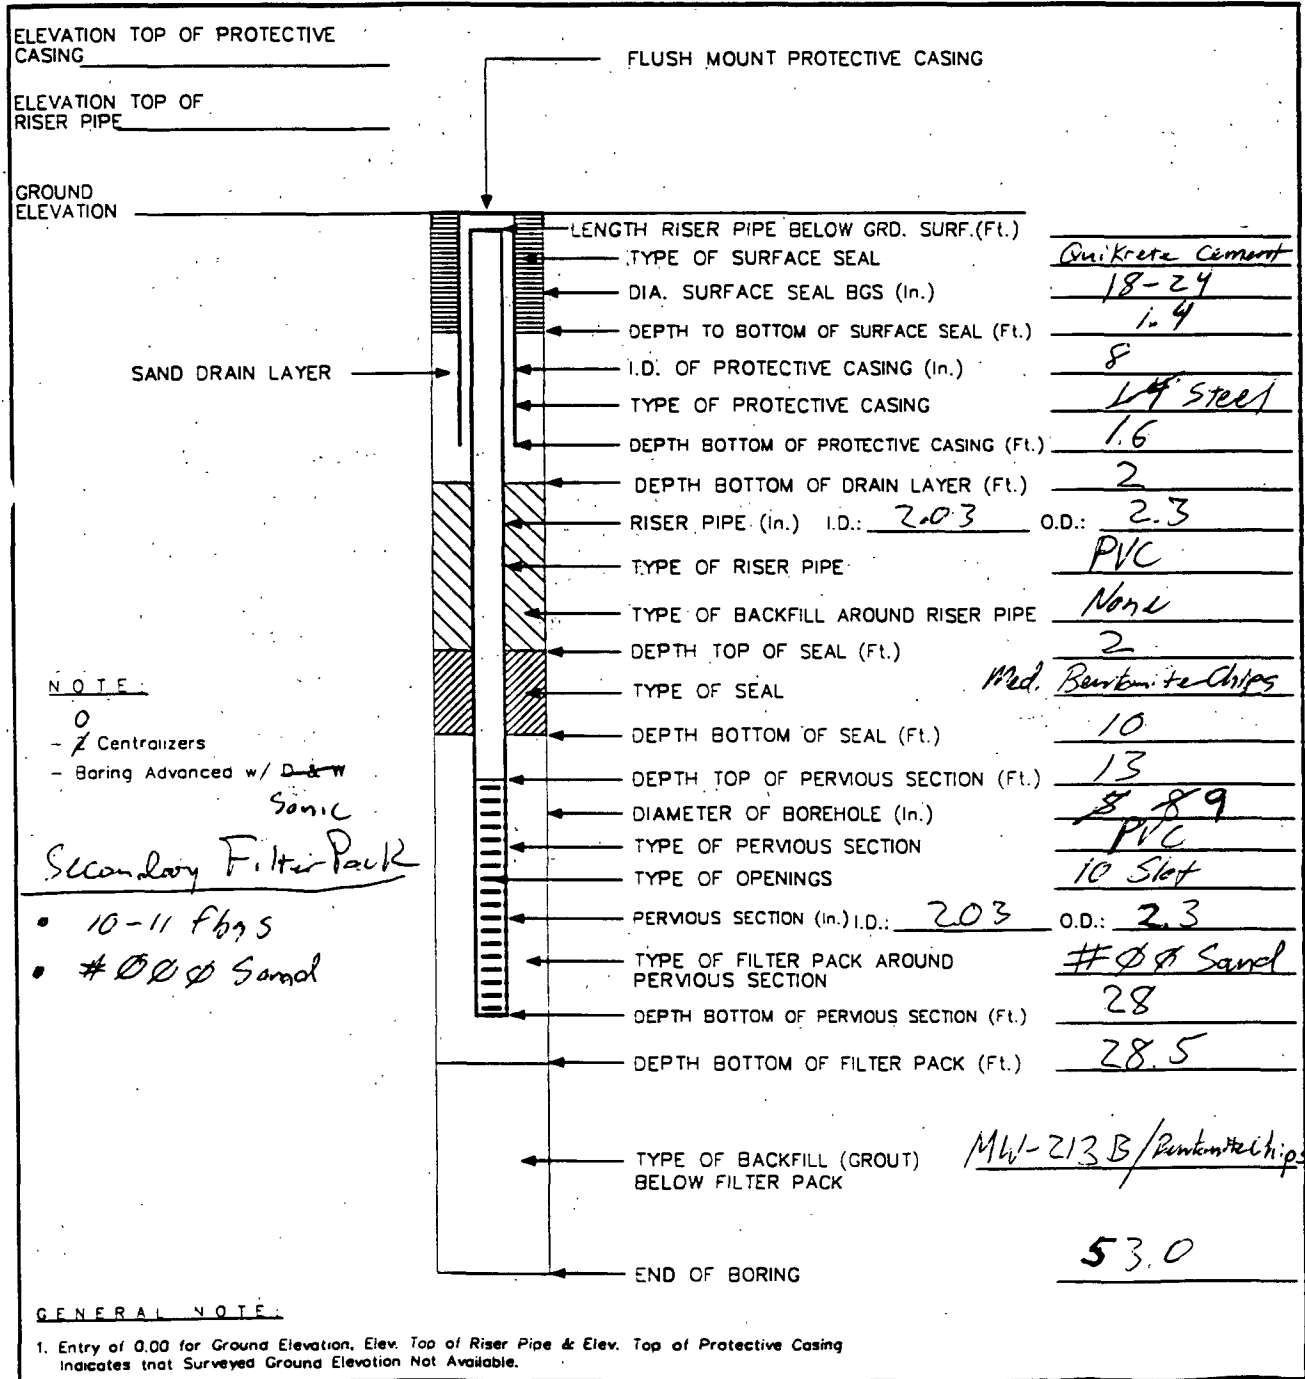 ELEVATION TOP OF PROTECTIVE
CASING
FLUSH MOUNT PROTECTIVE CASING
ELEVATION TOP OF
RISER PIPE
GROUND
ELEVATION
LENGTH RISER PIPE BELOW GRD. SURF.(Ft.)
TYPE OF SURFACE SEAL Quikrete Cement
DIA. SURFACE SEAL BGS (In.) 18-24
DEPTH TO BOTTOM OF SURFACE SEAL (Ft.) 1.4
SAND DRAIN LAYER
I.D. OF PROTECTIVE CASING (In.) 8
TYPE OF PROTECTIVE CASING Steel
DEPTH BOTTOM OF PROTECTIVE CASING (Ft.) 1.6
DEPTH BOTTOM OF DRAIN LAYER (Ft.) 2
RISER PIPE (In.) I.D.: 2.03 O.D.: 2.3
TYPE OF RISER PIPE PVC
TYPE OF BACKFILL AROUND RISER PIPE None
DEPTH TOP OF SEAL (Ft.) 2
TYPE OF SEAL Med. Bentonite Chips
DEPTH BOTTOM OF SEAL (Ft.) 10
DEPTH TOP OF PERVIOUS SECTION (Ft.) 13
DIAMETER OF BOREHOLE (In.) 9
TYPE OF PERVIOUS SECTION PVC
TYPE OF OPENINGS 10 Slot
PERVIOUS SECTION (In.) I.D.: 203 O.D.: 2.3
TYPE OF FILTER PACK AROUND #00 Sand
PERVIOUS SECTION
DEPTH BOTTOM OF PERVIOUS SECTION (Ft.) 28
DEPTH BOTTOM OF FILTER PACK (Ft.) 28.5
TYPE OF BACKFILL (GROUT) MW-213B/Bentonite Chips
BELOW FILTER PACK
END OF BORING 53.0
NOTE:
0
- 2 Centralizers
- Boring Advanced w/ D & W
Sonic
Secondary Filter Pack
• 10-11 fbgs
• #000 Sand
GENERAL NOTE:
1. Entry of 0.00 for Ground Elevation, Elev. Top of Riser Pipe & Elev. Top of Protective Casing
Indicates that Surveyed Ground Elevation Not Available.